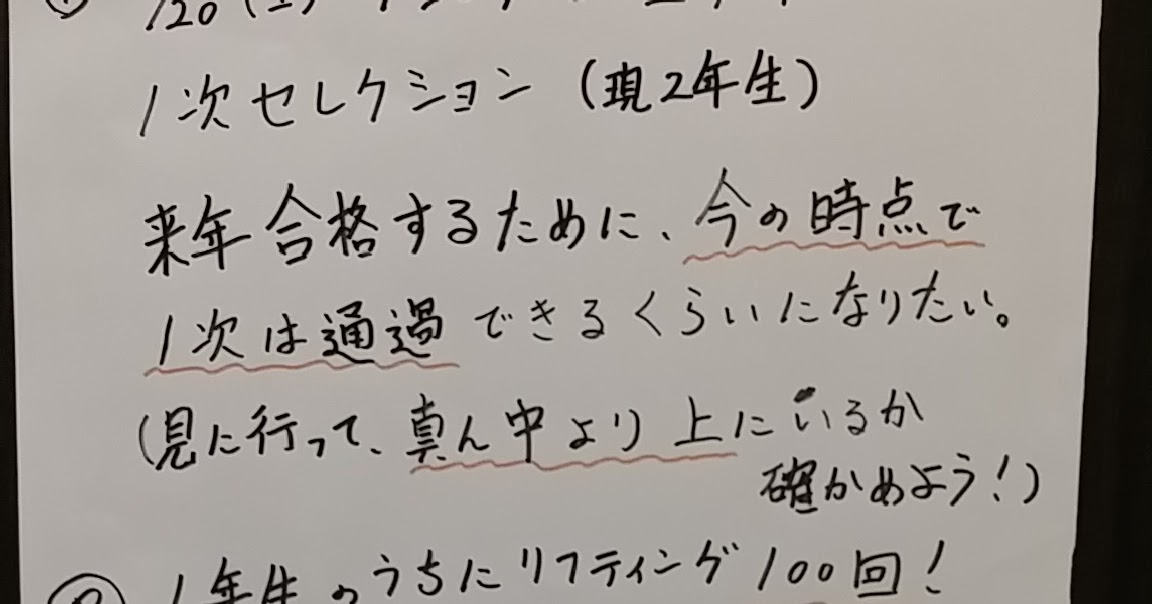 /20(土)
1次セレクション(現2年生)
来年合格するために、今の時点で
1次は通過できるくらいになりたい。
(見に行って、真ん中より上にいるか
確かめよう!)
② 1年生のうちにリフティング100回!